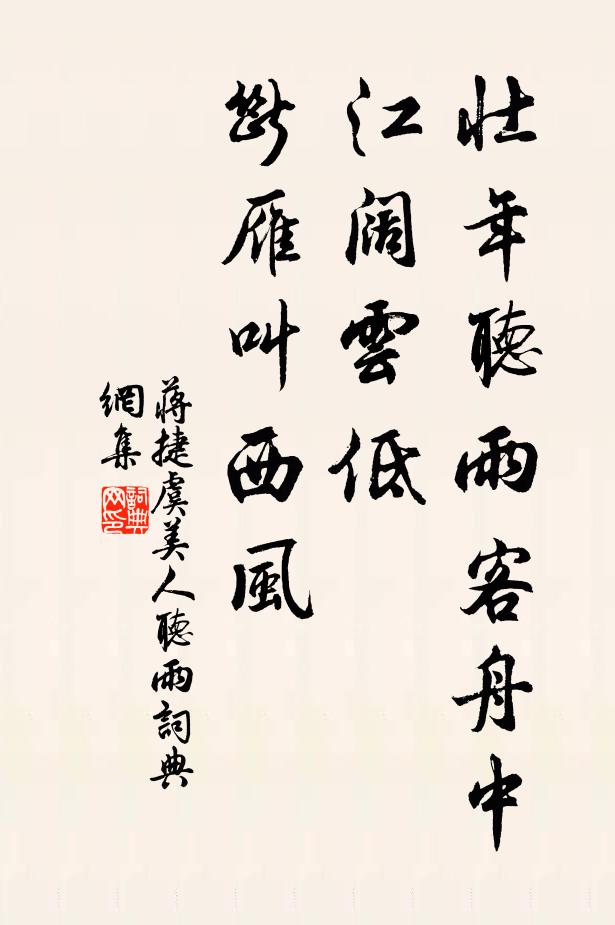 壯年聽雨客舟中
江闊雲低
斷雁叫西風
蔣捷虞美人聽雨詞典
網集
詞典
网印